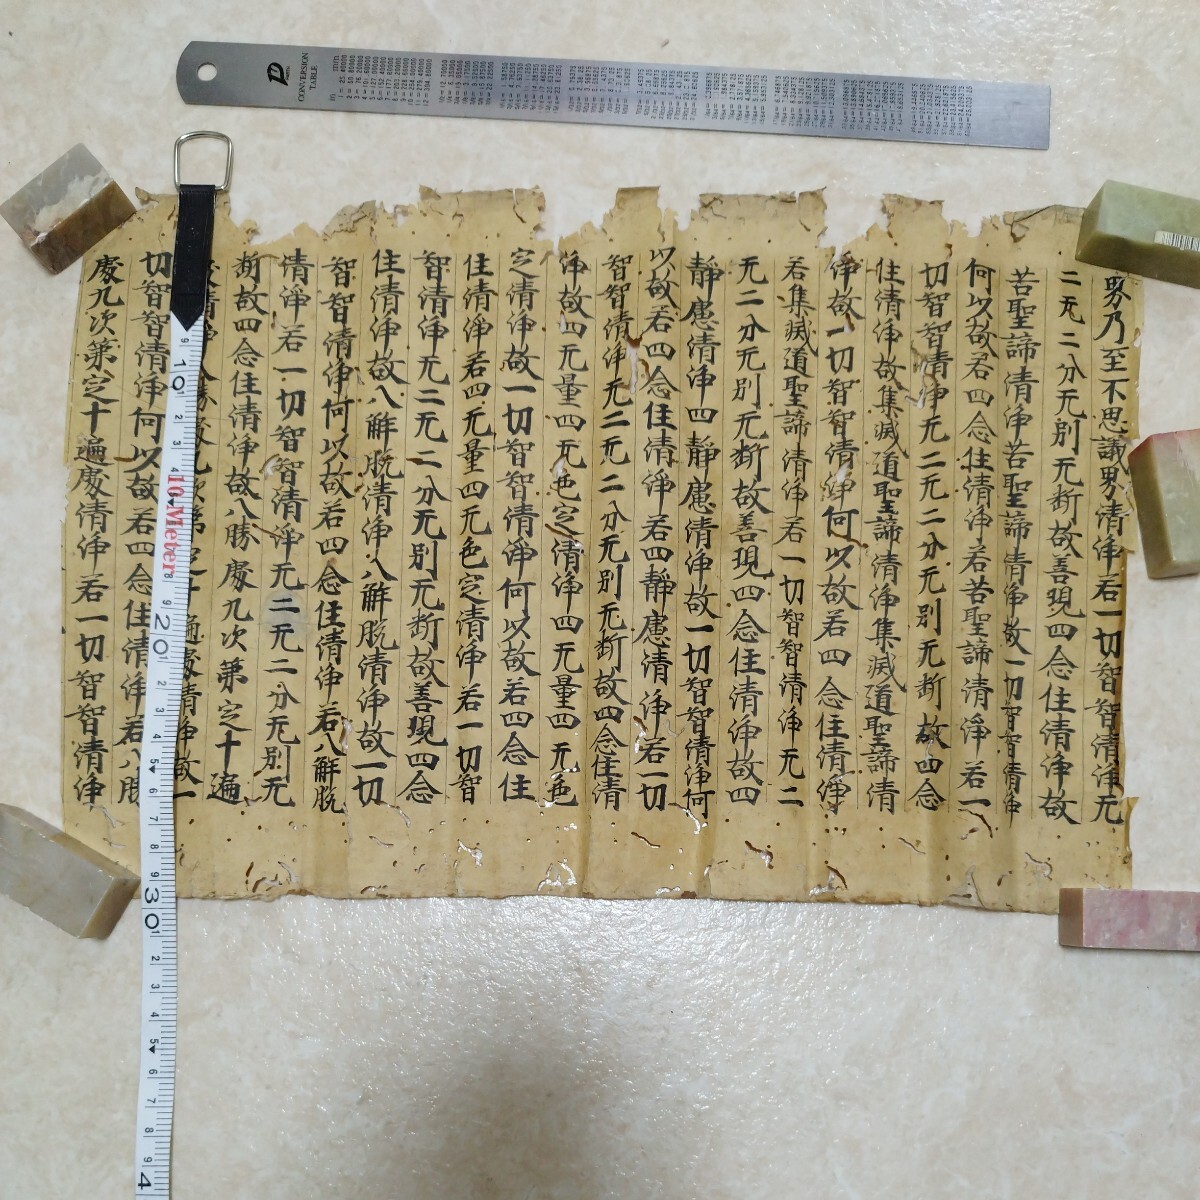 界乃至不思議界清淨若一切智智清淨无
二无二分无別无断故善現四念住清淨故
苦聖諦清淨苦聖諦清淨故一切智智清淨
何以故若四念住清淨若苦聖諦清淨若一
切智智清淨无二无二分无別无断故四念
住清淨故集滅道聖諦清淨集滅道聖諦清
淨故一切智智清淨何以故若四念住清淨
若集滅道聖諦清淨若一切智智清淨无二
无二分无別无断故善現四念住清淨故四
靜慮清淨四靜慮清淨故一切智智清淨何
以故若四念住清淨若四靜慮清淨若一切
智智清淨无二无二分无別无断故四念住清
淨故四无量四无色定清淨四无量四无色
定清淨故一切智智清淨何以故若四念住
住清淨若四无量四无色定清淨若一切智
智清淨无二无二分无別无断故善現四念
住清淨故八解脫清淨八解脫清淨故一切
智智清淨何以故若四念住清淨若八解脫
清淨若一切智智清淨无二无二分无別无
断故四念住清淨故八勝處九次第定十遍
處清淨八勝處九次第定十遍處清淨故一
切智智清淨何以故若四念住清淨若八勝
處九次第定十遍處清淨若一切智智清淨
CONVERSION
TABLE
10 Meter